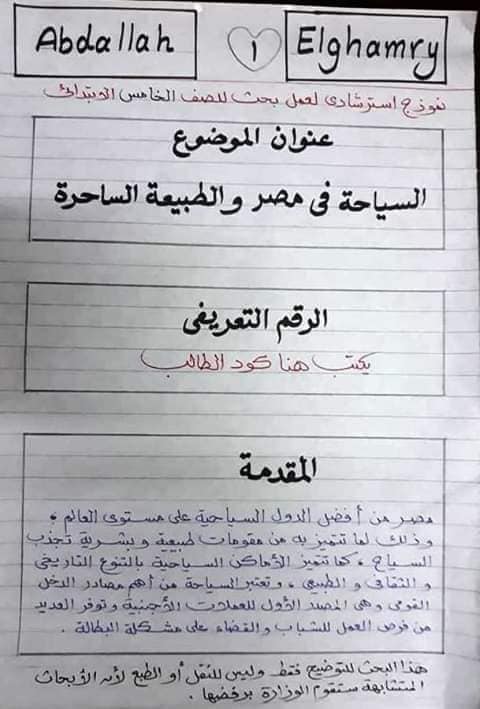 Abdallah ١ Elghamry
نموذج استرشادى لعمل بحث للصف الخامس الابتدائى
عنوان الموضوع
السياحة فى مصر والطبيعة الساحرة
الرقم التعريفى
يكتب هنا كود الطالب
المقدمة
مصر من أفضل الدول السياحية على مستوى العالم ،
وذلك لما تتميز به من مقومات طبيعية وبشرية تجذب
السياح ، كما تتميز الأماكن السياحية بالتنوع التاريخى
والثقافى والطبيعى ، وتعتبر السياحة من أهم مصادر الدخل
القومى وهى المصدر الأول للعملات الأجنبية وتوفر العديد
من فرص العمل للشباب والقضاء على مشكلة البطالة .
هذا البحث للتوضيح فقط وليس للنقل أو الطبع لأن الأبحاث
المتشابهة ستقوم الوزارة برفضها .